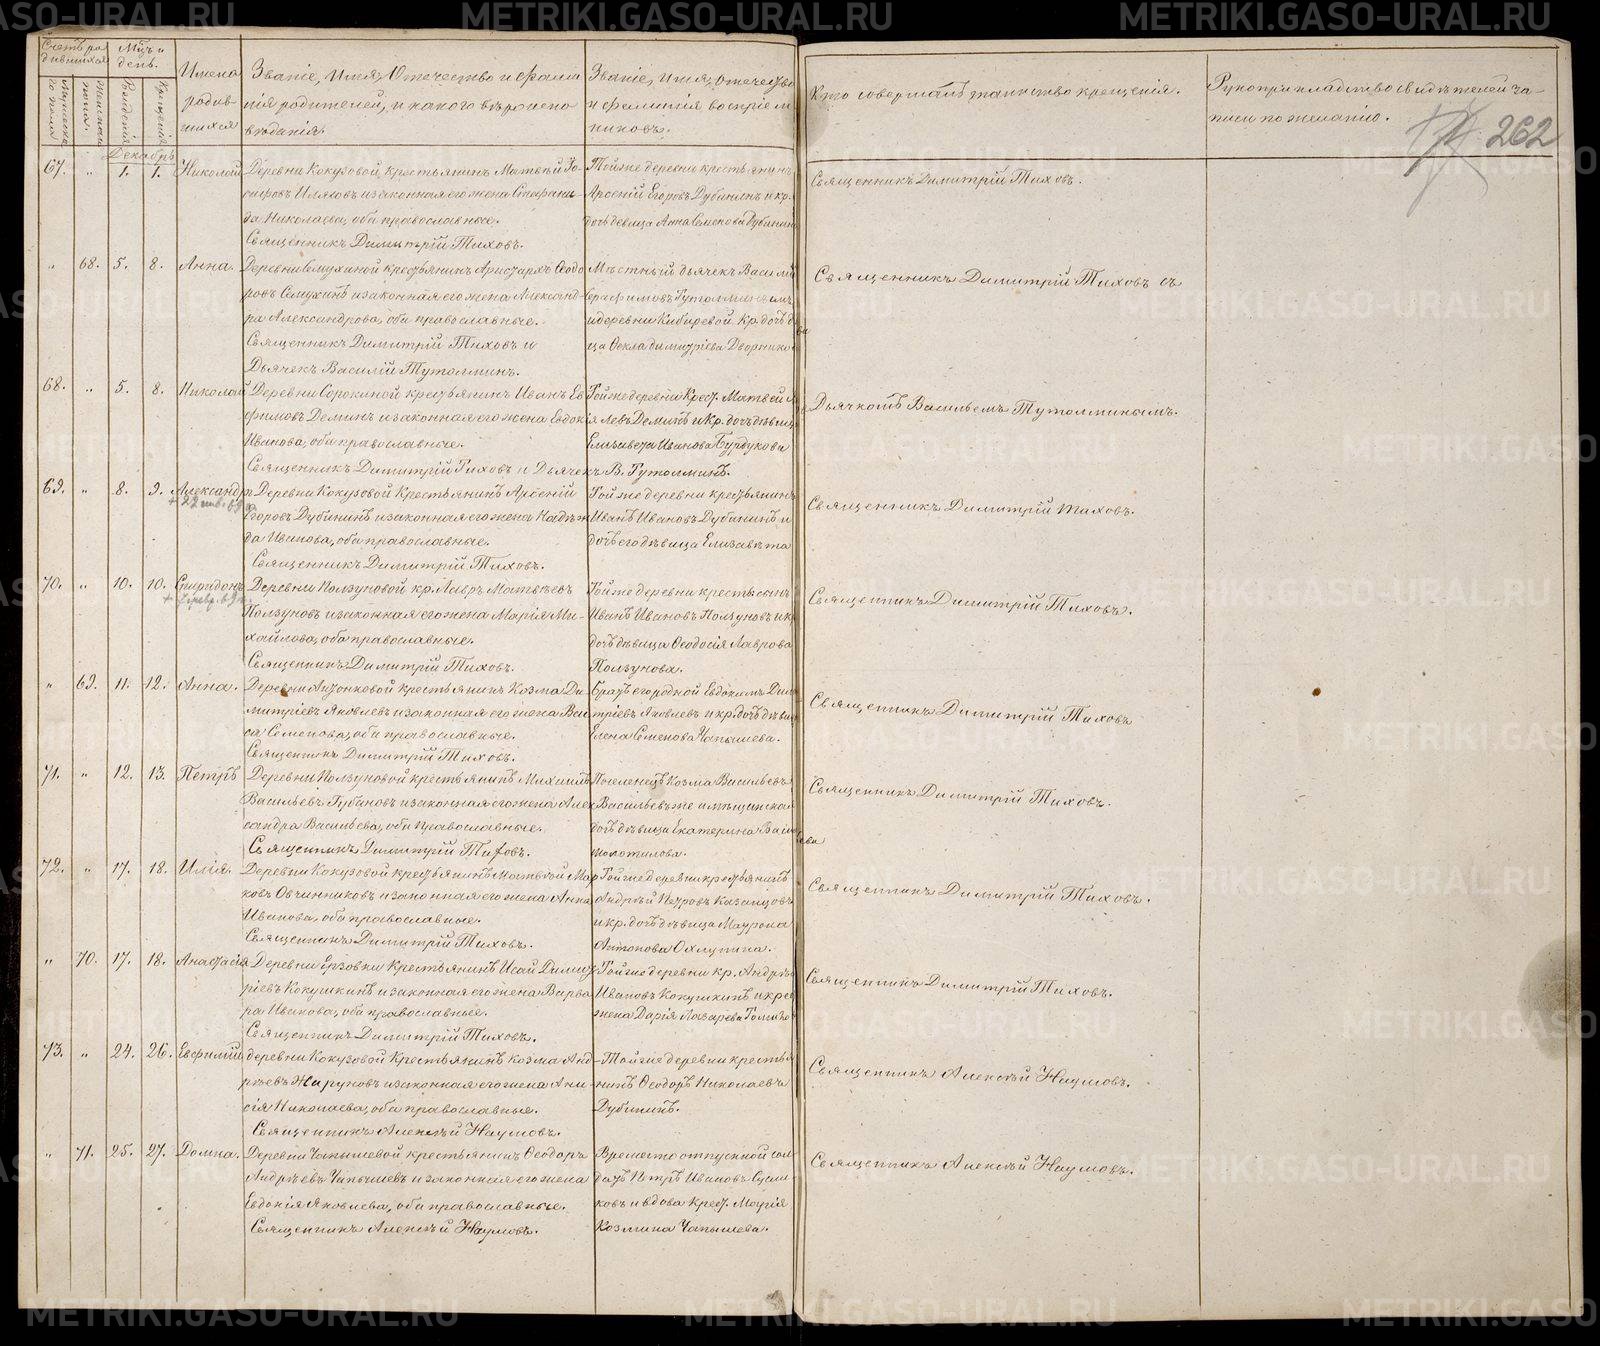 METRIKI.GASO-URAL.RU
Счетъ ро
дившихся
Мужеска
го пола
Женскаго
пола.
Мцъ и
день.
Рожденія
Крещенія
Имена
родив-
шихся
Званіе, Имя, Отечество и фами
лія родителей, и какого вѣроиспо
вѣданія.
Званіе, имя, отечество
и фамилія воспріем
никовъ.
Кто совершалъ таинство крещенія.
Рукоприкладство свидѣтелей за-
писи по желанію.
262
Декабрь
67. " 1. 1. Николай
Деревни Кокузовой, крестьянинъ Матвѣй Іо
сифовъ и законная его жена Стефани
да Николаева, оба православные.
Священникъ Димитрій Тиховъ.
Тойже деревни крестьянинъ
Арсеній Егоровъ Дубининъ и кр.
дочь девица Анна Семенова Дубинин
Священникъ Димитрій Тиховъ.
" 68. 5. 8. Анна.
Деревни Семухиной крестьянинъ Аристархъ Ѳеодо
ровъ Семухинъ и законная его жена Александ-
ра Александрова, оба православные.
Священникъ Димитрій Тиховъ и
Дьячекъ Василій Тутолминъ.
Мѣстный дьячекъ Василій
Серафимовъ Тутолминъ
и деревни Кибиревой кр. дочь д
ца Ѳекла Димитріева Дворнико
Священникъ Димитрій Тиховъ съ
68. " 5. 8. Николай
Деревни Сорокиной крестьянинъ Иванъ Ев
фимовъ Деминъ и законная его жена Евдокія
Иванова, оба православные.
Священникъ Димитрій Тиховъ и Дьячекъ В. Тутолминъ.
Тойже деревни Крест. Матвей
Деминъ и Кр. дочь дѣвица
Елизавета Иванова Бурдукова
Дьячкомъ Васильемъ Тутолминымъ.
69. " 8. 9. Александръ
Деревни Кокузовой Крестьянинъ Арсеній
Егоровъ Дубининъ и законная его жена Надѣж
да Иванова, оба православные.
Священникъ Димитрій Тиховъ.
Тойже деревни крестьянинъ
Иванъ Ивановъ Дубининъ и
дочь его дѣвица Елизавета
Священникъ Димитрій Тиховъ.
70. " 10. 10. Спиридонъ
Деревни Ползуновой кр. Лавръ Матвѣевъ
Ползуновъ и законная его жена Марія Ми-
хайлова, оба православные.
Священникъ Димитрій Тиховъ.
Тойже деревни крестьянинъ
Иванъ Ивановъ Ползуновъ и кр
дочь дѣвица Ѳеодосія Лаврова
Ползунова.
Священникъ Димитрій Тиховъ.
" 69. 11. 12. Анна.
Деревни крестьянинъ Козма Ди-
митріевъ Яковлевъ и законная его жена Васи
са Семенова, оба православные.
Священникъ Димитрій Тиховъ.
Братъ его родной Евдокимъ Дим
тріевъ Яковлевъ и кр. дочь дѣви
Елена Семенова Чапышева.
Священникъ Димитрій Тиховъ
71. " 12. 13. Петръ
Деревни Ползуновой крестьянинъ Михаилъ
Васильевъ Губиновъ и законная его жена Алек
сандра Васильева, оба Православные.
Священникъ Димитрій Тиховъ.
Поселенецъ Козма Васильевъ
Васильевъ же и мѣщанская
дочь дѣвица Екатерина Васи
Священникъ Димитрій Тиховъ.
72. " 17. 18. Илія.
Деревни Кокузовой крестьянинъ Матвѣй Мар
ковъ Овчинниковъ и законная его жена Анна
Иванова, оба православные.
Священникъ Димитрій Тиховъ.
Тойже деревни крестьянинъ
Андрѣй Петровъ Казанцовъ
и кр. дочь дѣвица Маурона
Антонова Охлупина.
Священникъ Димитрій Тиховъ.
" 70. 17. 18. Анастасія
Деревни Ерзовки Крестьянинъ Исай Димит
ріевъ Кокушкинъ и законная его жена Варва
ра Иванова, оба православные.
Священникъ Димитрій Тиховъ.
Тойже деревни кр. Андрѣй
Ивановъ Кокушкинъ и крес
жена Дарія Лазарева
Священникъ Димитрій Тиховъ.
73. " 24. 26. Евфимій
деревни Кокузовой Крестьянинъ Козма Анд-
рѣевъ и законная его жена Ани-
сія Николаева, оба православные.
Священникъ Алексѣй Наумовъ.
Тойже деревни крестья
нинъ Ѳеодоръ Николаевъ
Дубининъ.
Священникъ Алексѣй Наумовъ.
" 71. 25. 27. Домна.
Деревни Чапышевой крестьянинъ Ѳеодоръ
Андрѣевъ Чапышевъ и законная его жена
Евдокія Яковлева, оба православные.
Священникъ Алексѣй Наумовъ.
Временно отпускной сол
датъ Петръ Ивановъ Сусли
ковъ и вдова Крест. Марія
Козмина Чапышева.
Священникъ Алексѣй Наумовъ.